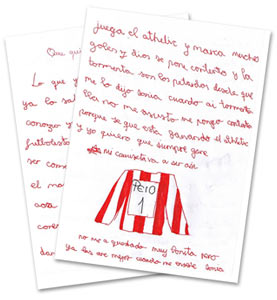 Que qui
Lo que y
ya lo sa
conozco y
futbolist
ser como
el ma
cosa
cores
dan
juega el athletic y marca muchos
goles y dios se pone contento y la
tormenta son los petardos desde que
me lo dijo sonia cuando ai tormenta
no me asusto me pongo contento
porque se que esta ganando el athletic
y yo quiero que siempre gane
mi camiseta va a ser asi
PEIO
1
no me a quedado muy bonita pero
ya las are mejor cuando me enseñe sonia